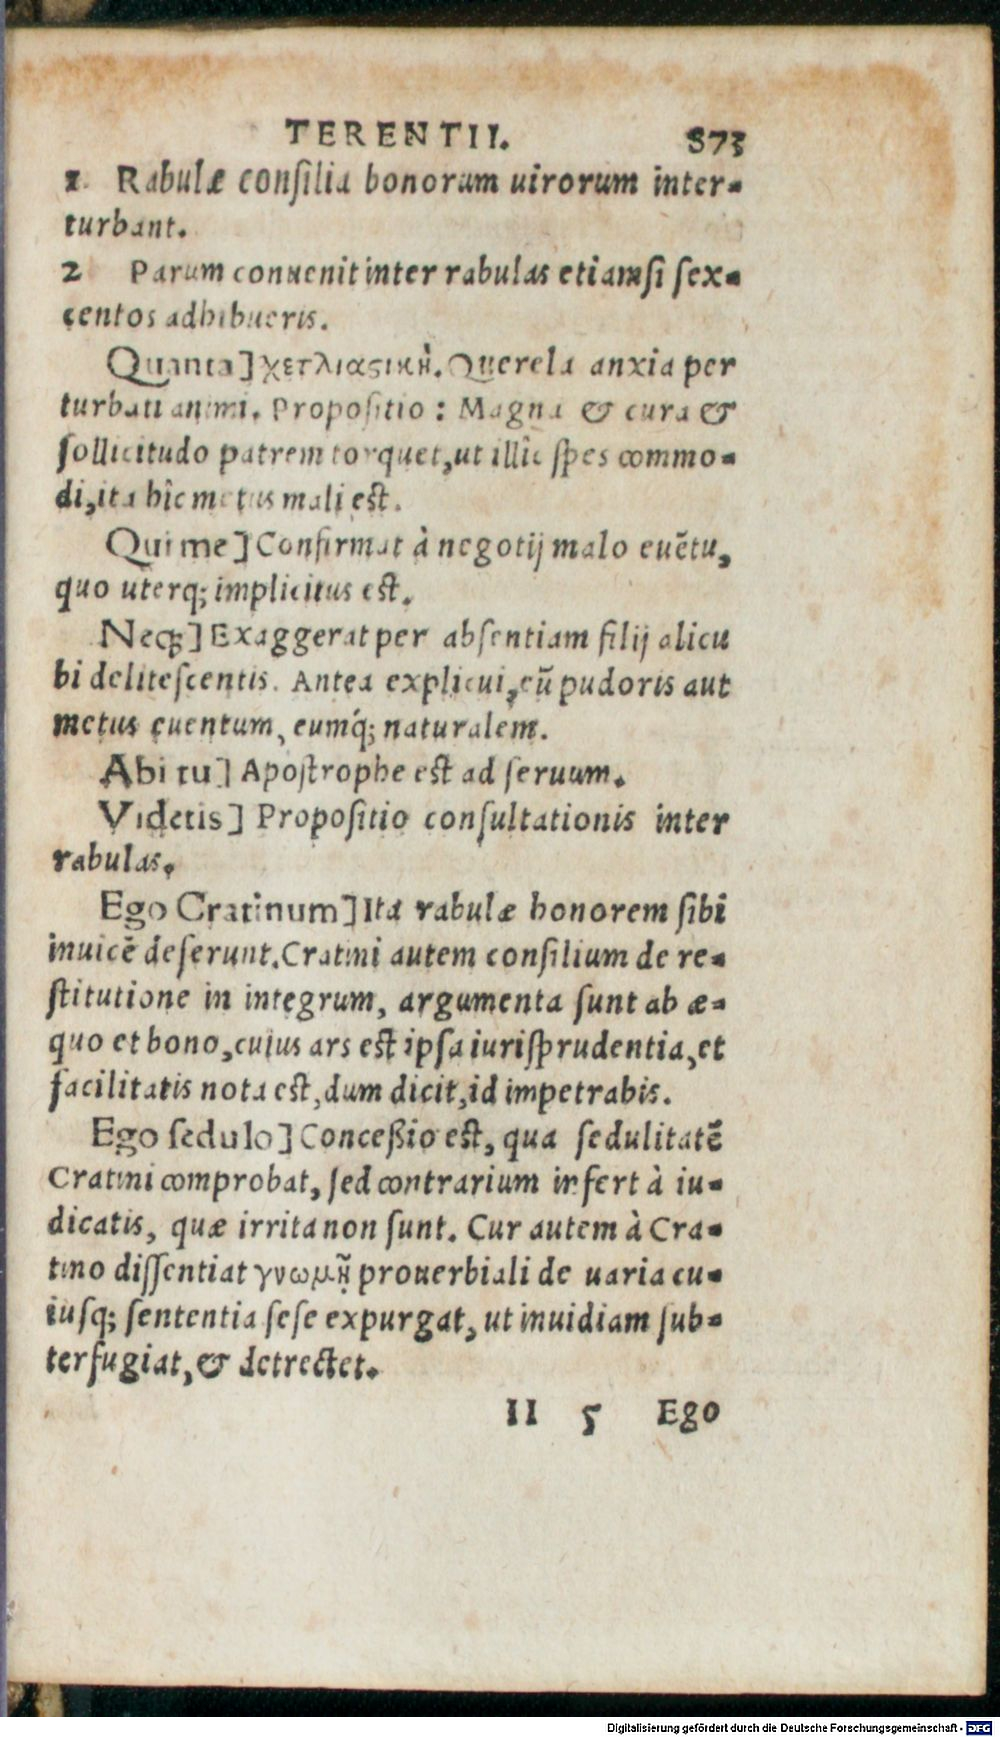 TERENTII. 873
1. Rabulæ consilia bonorum uirorum inter-
turbant.
2 Parum conuenit inter rabulas etiamsi sex-
centos adhibueris.
Quanta] χετλιαςικὴ. Querela anxia per
turbati animi. Propositio: Magna & cura &
sollicitudo patrem torquet, ut illîc spes commo-
di, ita hîc metus mali est.
Qui me] Confirmat à negotij malo euẽtu,
quo uterq; implicitus est.
Neq;] Exaggerat per absentiam filij alicu
bi delitescentis. Antea explicui, cũ pudoris aut
metus euentum, eumq́; naturalem.
Abi tu] Apostrophe est ad seruum.
Videtis] Propositio consultationis inter
rabulas.
Ego Cratinum] Ita rabulæ honorem sibi
inuicẽ deferunt. Cratini autem consilium de re-
stitutione in integrum, argumenta sunt ab æ-
quo et bono, cuius ars est ipsa iurisprudentia, et
facilitatis nota est, dum dicit, id impetrabis.
Ego sedulo] Conceßio est, qua sedulitatẽ
Cratini comprobat, sed contrarium infert à iu-
dicatis, quæ irrita non sunt. Cur autem à Cra-
tino dissentiat γνωμῇ prouerbiali de uaria cu-
iusq; sententia sese expurgat, ut inuidiam sub-
terfugiat, & detrectet.
II 5 Ego
Digitalisierung gefördert durch die Deutsche Forschungsgemeinschaft - DFG